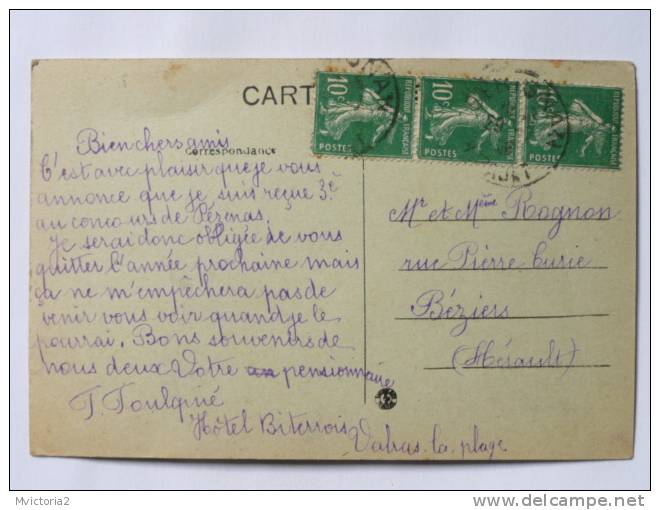 CART
Correspondance
Bien chers amis
C'est avec plaisir que je vous
annonce que je suis reçue 3e
au concours de Pézenas.
Je serai donc obligée de vous
quitter l'année prochaine mais
ça ne m'empêchera pas de
venir vous voir quand je le
pourrai. Bons souvenirs de
nous deux Votre pensionnaire
Hôtel Biterrois
Valras-la-plage
10c
POSTES
10c
POSTES
10c
POSTES
Mr et Mme Rognon
rue Pierre
Béziers
(Hérault)
Mvictoria2
delcampe.net